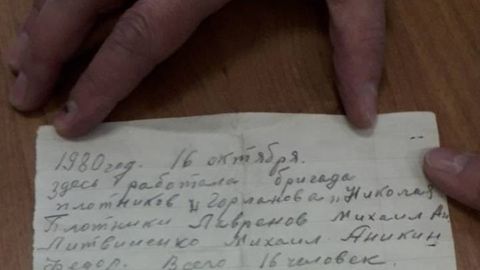 1980год. 16 октября.
здесь работала бригада
плотников Горланова Николая
Плотники Лавренов Михаил Ан
Литвиненко Михаил Аникин
Федор. Всего 16 человек.